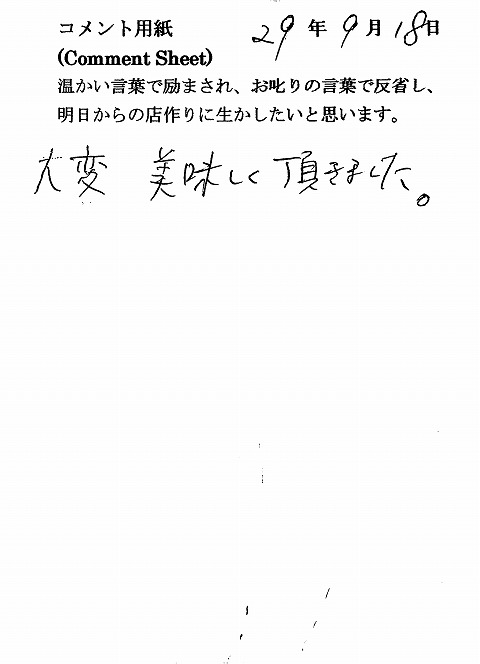 コメント用紙 29年9月18日
(Comment Sheet)
温かい言葉で励まされ、お叱りの言葉で反省し、
明日からの店作りに生かしたいと思います。
大変 美味しく頂きました。